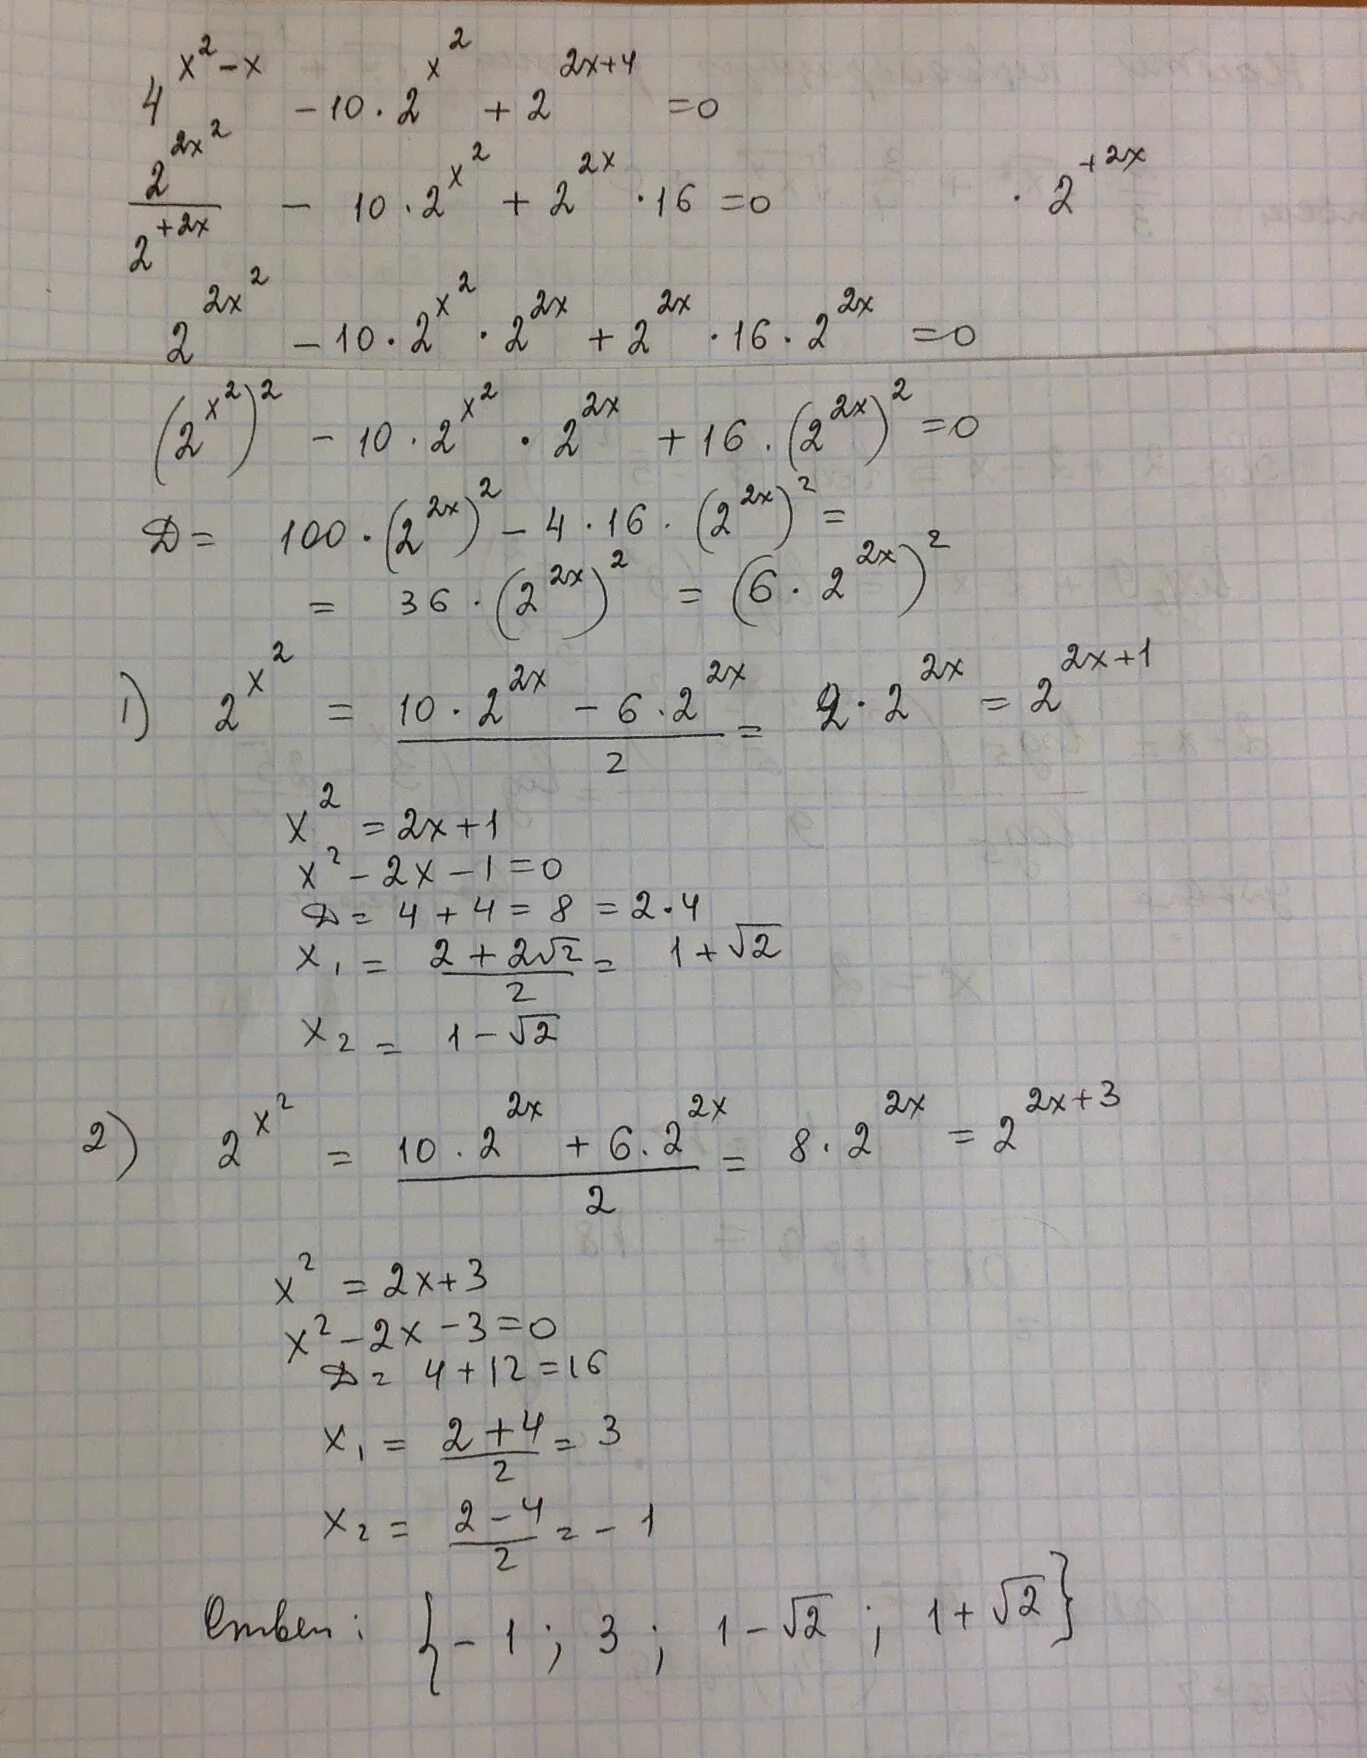 4^(x²-x) - 10 · 2^(x²) + 2^(2x+4) = 0
2^(2x²) / 2^(+2x) - 10 · 2^(x²) + 2^(2x) · 16 = 0 · 2^(+2x)
2^(2x²) - 10 · 2^(x²) · 2^(2x) + 2^(2x) · 16 · 2^(2x) = 0
(2^(x²))² - 10 · 2^(x²) · 2^(2x) + 16 · (2^(2x))² = 0
D = 100 · (2^(2x))² - 4 · 16 · (2^(2x))² =
= 36 · (2^(2x))² = (6 · 2^(2x))²
1) 2^(x²) = (10 · 2^(2x) - 6 · 2^(2x)) / 2 = 2 · 2^(2x) = 2^(2x+1)
x² = 2x+1
x² - 2x - 1 = 0
D = 4 + 4 = 8 = 2 · 4
x₁ = (2 + 2√2) / 2 = 1 + √2
x₂ = 1 - √2
2) 2^(x²) = (10 · 2^(2x) + 6 · 2^(2x)) / 2 = 8 · 2^(2x) = 2^(2x+3)
x² = 2x+3
x² - 2x - 3 = 0
D = 4 + 12 = 16
x₁ = (2 + 4) / 2 = 3
x₂ = (2 - 4) / 2 = -1
Ответ: {-1; 3; 1-√2; 1+√2}